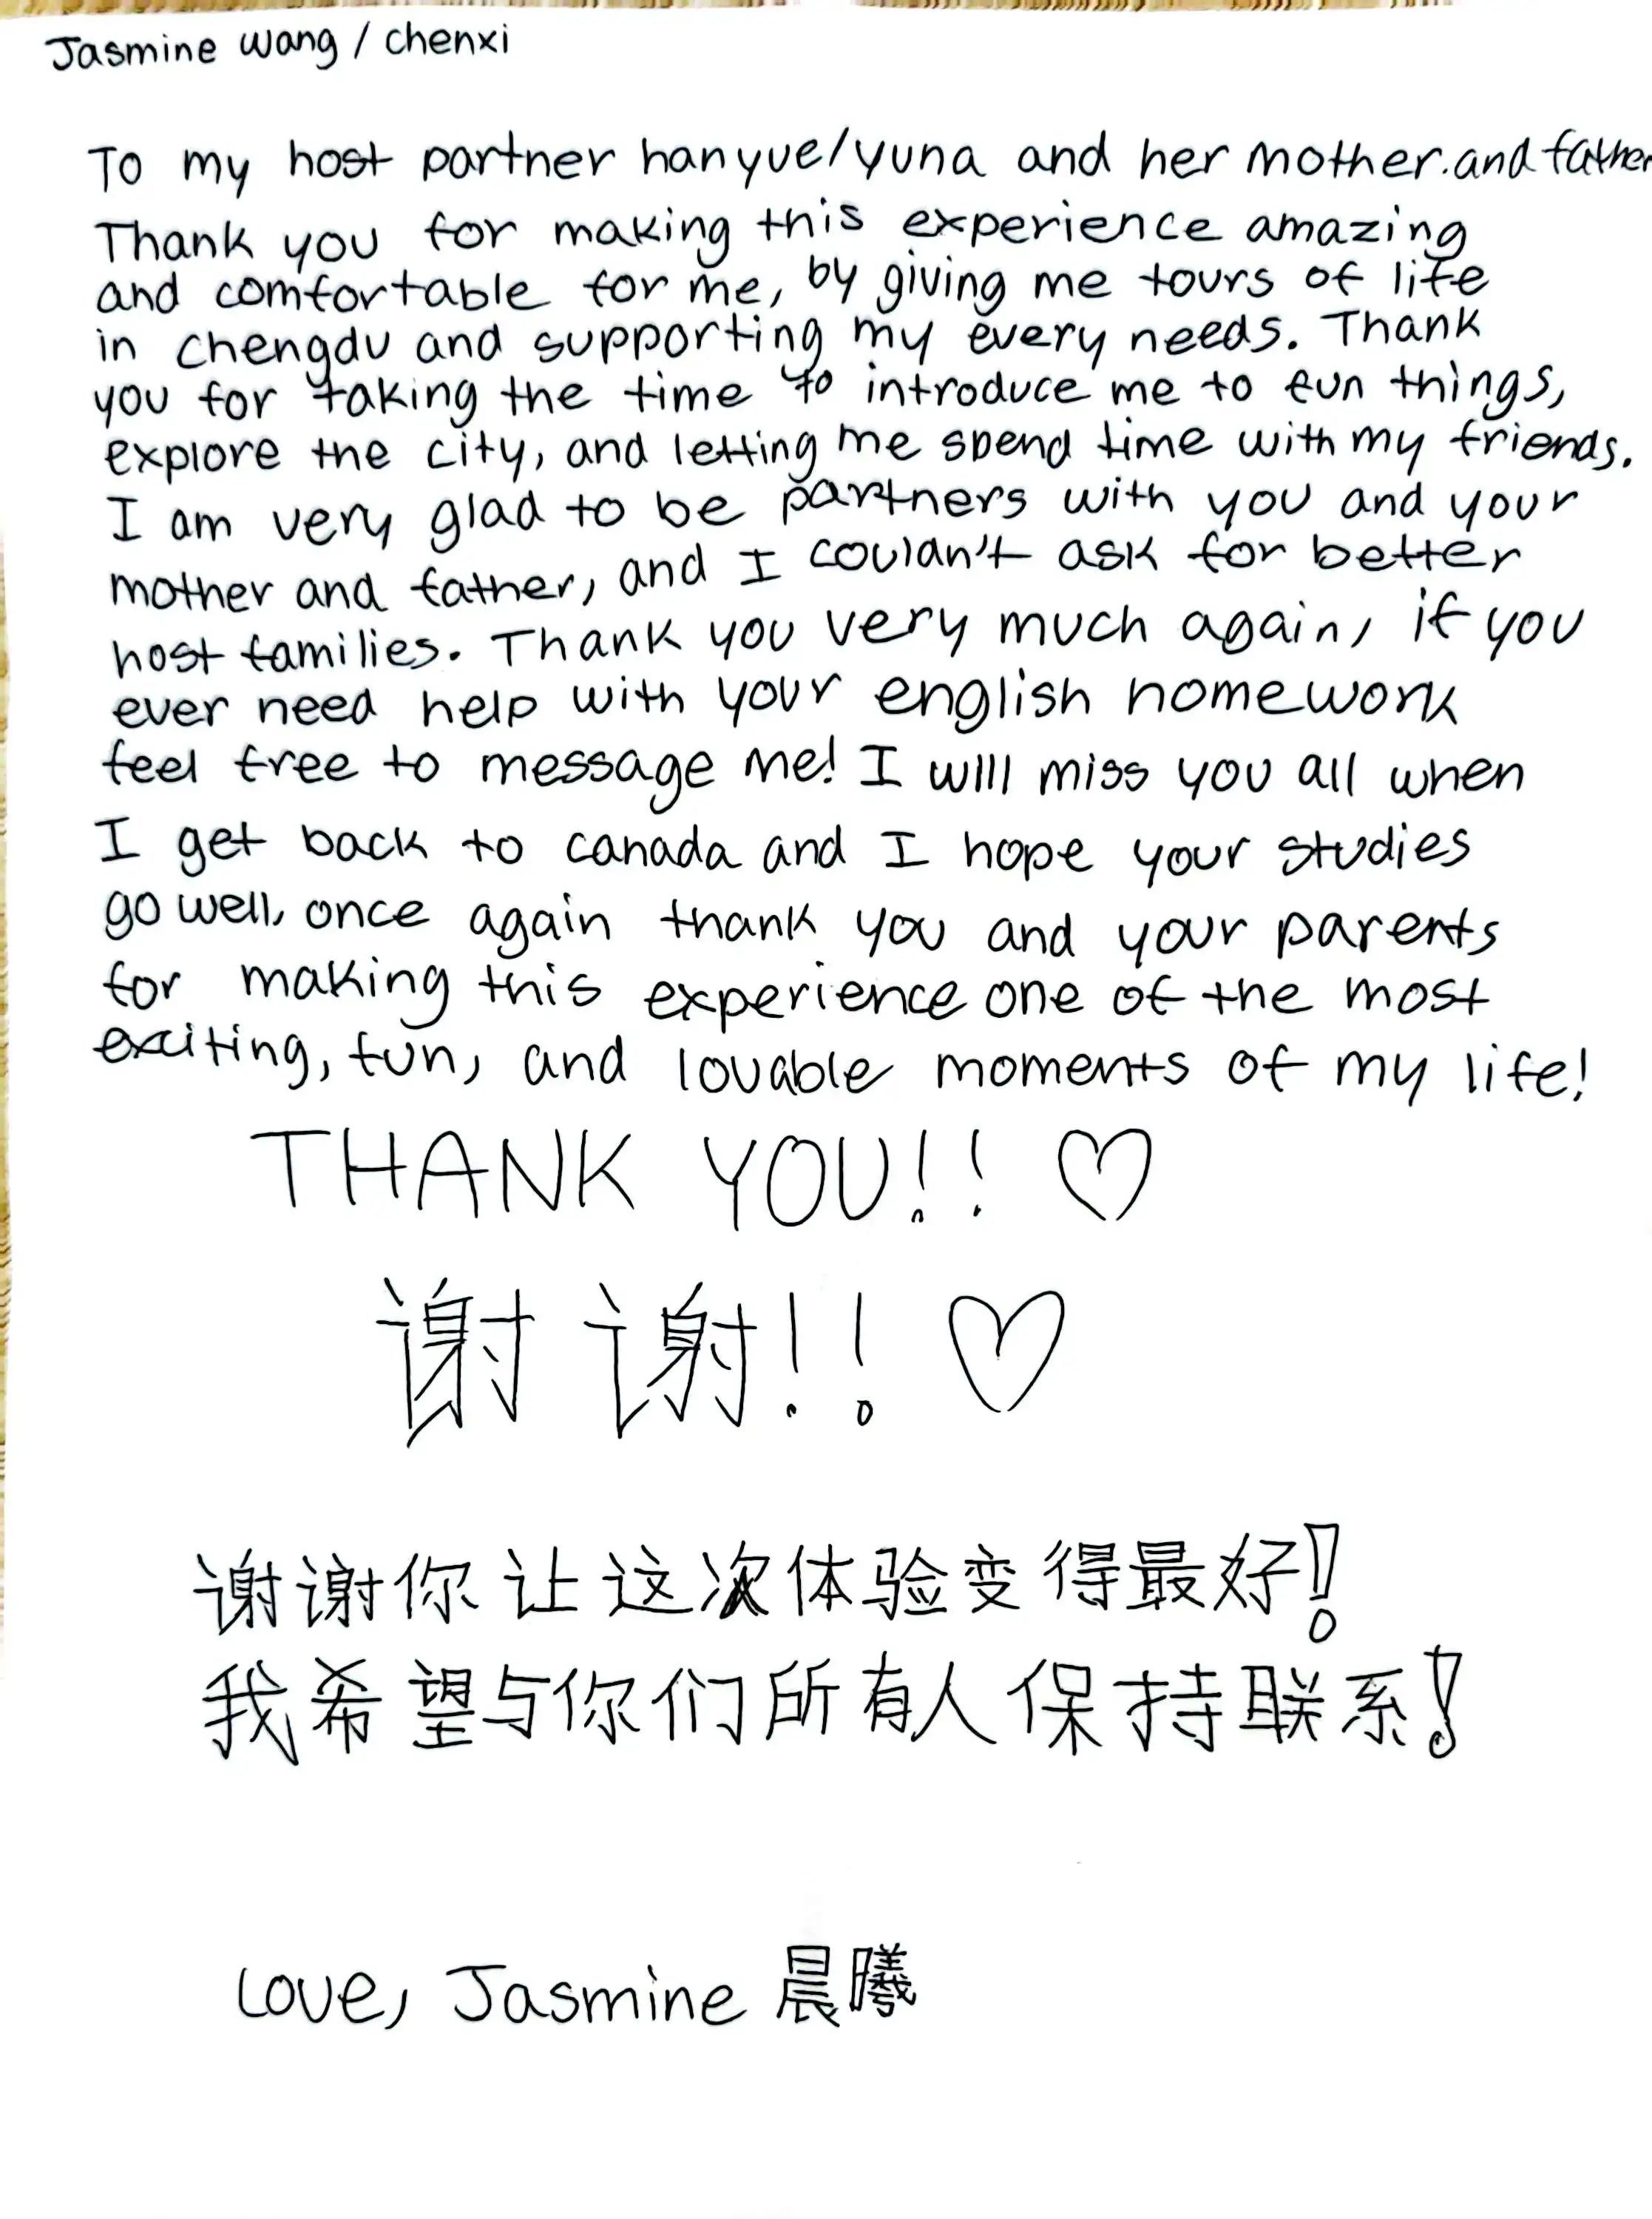 Jasmine wang / chenxi
To my host partner hanyue/yuna and her mother.and father
Thank you for making this experience amazing
and comfortable for me, by giving me tours of life
in chengdu and supporting my every needs. Thank
you for taking the time to introduce me to fun things,
explore the city, and letting me spend time with my friends.
I am very glad to be partners with you and your
mother and father, and I couldn't ask for better
host families. Thank you very much again, if you
ever need help with your english homework
feel free to message me! I will miss you all when
I get back to canada and I hope your studies
go well, once again thank you and your parents
for making this experience one of the most
exciting, fun, and lovable moments of my life!
THANK YOU!! ♡
谢谢!! ♡
谢谢你让这次体验变得最好!
我希望与你们所有人保持联系!
Love, Jasmine 晨曦